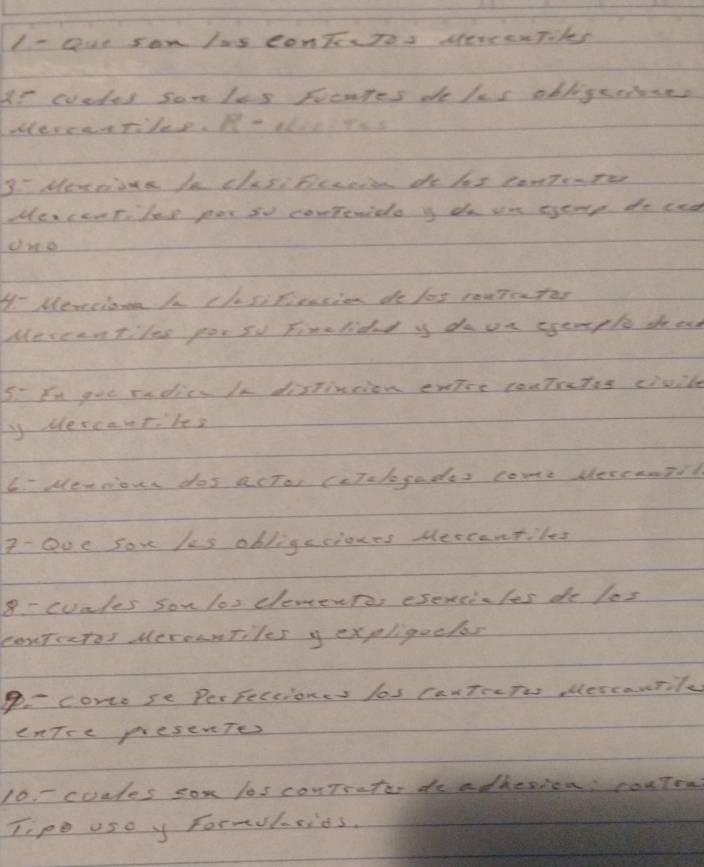 1- Que son los contratos Mercantiles
2- cuales son las fuentes de las obligaciones
Mercantiles. R-
3- Menciona la clasificacion de los contrato
Mercantiles por su contenido y da un egemp de cad
uno
4- Menciona la clasificasion de los contratos
Mercantiles por su finalidad y da un egemplo de cad
5- En que radica la distincion entre contratos civile
y Mercantiles
6- Menciona dos actos catalogados como Mercantil
7- Que son las obligaciones Mercantiles
8- cuales son los elementos esenciales de los
contratos Mercantiles y expliquelos
9.- como se Perfecciones los contratos Mercantile
entre presentes
10.- cuales son los contratos de adhesion: contra
Tipo uso y Formularios.